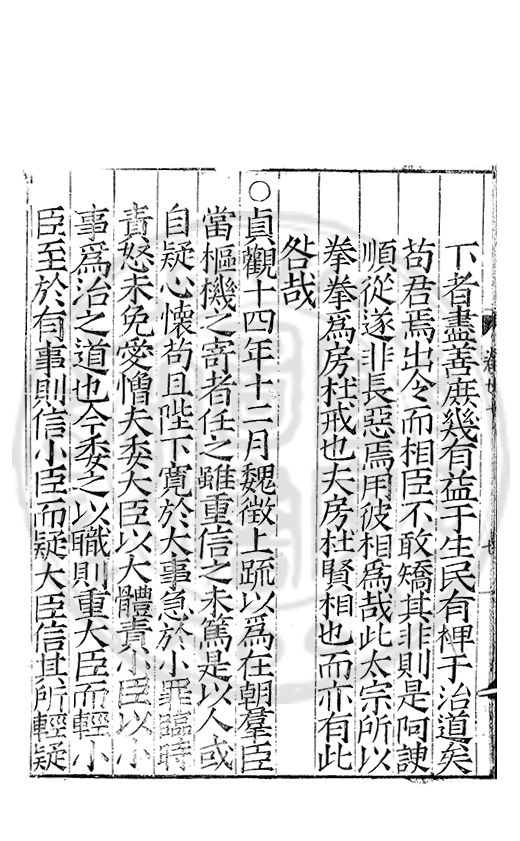 下者盡善庶幾有益于生民有裨于治道矣
苟君焉出令而相臣不敢矯其非則是阿諛
順從遂非長惡焉用彼相為哉此太宗所以
拳拳為房杜戒也夫房杜賢相也而亦有此
咎哉
○貞觀十四年十二月魏徵上疏以為在朝羣臣
當樞機之寄者任之雖重信之未篤是以人或
自疑心懷苟且陛下寛於大事急於小罪臨時
責怒未免愛憎夫委大臣以大體責小臣以小
事為治之道也今委之以職則重大臣而輕小
臣至於有事則信小臣而疑大臣信其所輕疑